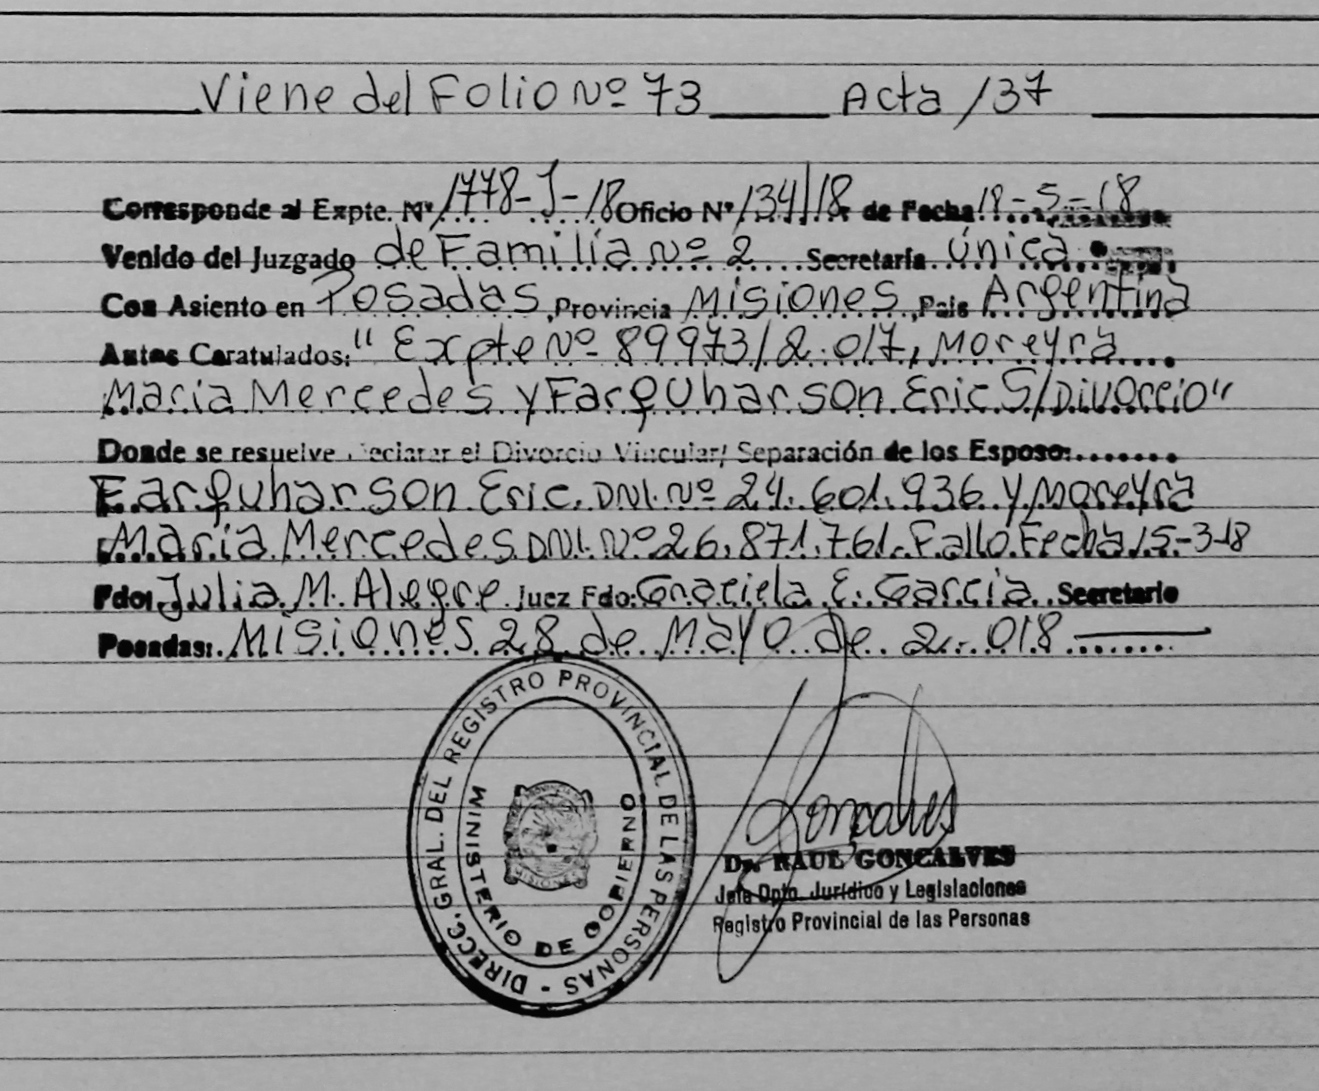 Viene del Folio Nº 73 Acta 137
Corresponde al Expte. Nº 1778-J-18 Oficio Nº 134/18 de Fecha 18-5-18
Venido del Juzgado de Familia Nº 2 Secretaria Única
Con Asiento en Posadas, Provincia Misiones, Pais Argentina
Autos Caratulados: "Expte Nº 89973/2.017, Moreyra
Maria Mercedes y Farquharson Eric S/Divorcio"
Donde se resuelve Declarar el Divorcio Vincular/ Separación de los Esposos:
Farquharson Eric. DNI. Nº 24.601.936 y Moreyra
Maria Mercedes DNI. Nº 26.871.761. Fallo Fecha 15-3-18
Fdo: Julia M. Alegre Juez Fdo: Graciela E. Garcia. Secretario
Posadas: Misiones 28 de Mayo de 2.018
DIRECC. GRAL. DEL REGISTRO PROVINCIAL DE LAS PERSONAS -
MINISTERIO DE GOBIERNO
MISIONES
Goncalves
Dr. RAUL GONCALVES
Jefe Dpto. Jurídico y Legislaciones
Registro Provincial de las Personas